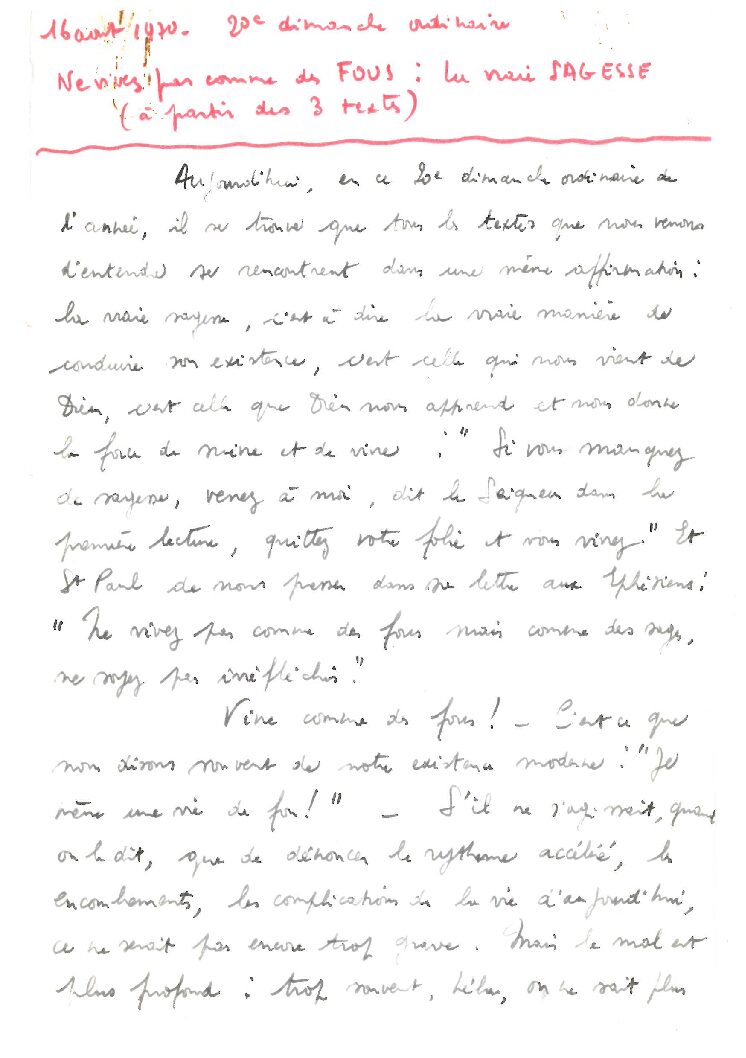 16 aout 1970. 20e dimanche ordinaire
Ne vivez pas comme des FOUS : la vraie SAGESSE
(à partir des 3 textes)
Aujourd'hui, en ce 20e dimanche ordinaire de
l'année, il se trouve que tous les textes que nous venons
d'entendre se rencontrent dans une même affirmation :
la vraie sagesse, c'est à dire la vraie manière de
conduire son existence, c'est celle qui nous vient de
Dieu, c'est celle que Dieu nous apprend et nous donne
la force de suivre et de vivre : " Si vous manquez
de sagesse, venez à moi, dit le Seigneur dans la
première lecture, quittez votre folie et vous vivrez." Et
St Paul de nous presser dans sa lettre aux Ephésiens :
" Ne vivez pas comme des fous mais comme des sages,
ne soyez pas irréfléchis."
Vivre comme des fous ! _ C'est ce que
nous disons souvent de notre existence moderne : "Je
mène une vie de fou ! " _ S'il ne s'agissait, quand
on le dit, que de dénoncer le rythme accéléré, les
encombrements, les complications de la vie d'aujourd'hui,
ce ne serait pas encore trop grave. Mais le mal est
plus profond : trop souvent, hélas, on ne sait plus